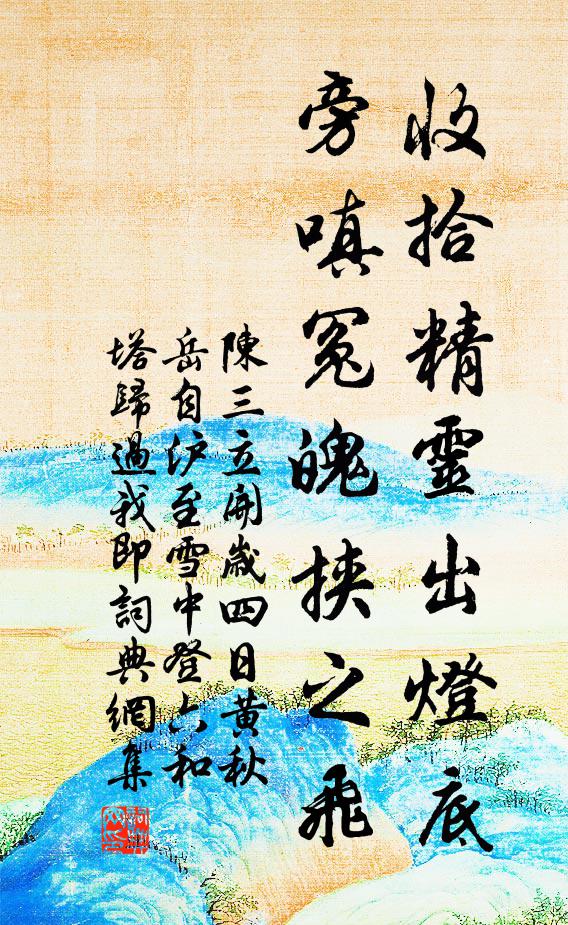 收拾精靈出燈底
旁嗔冤魄挾之飛
陳三立開歲四日黃秋
岳自沪至雪中登六和
塔歸過我即詞典網集